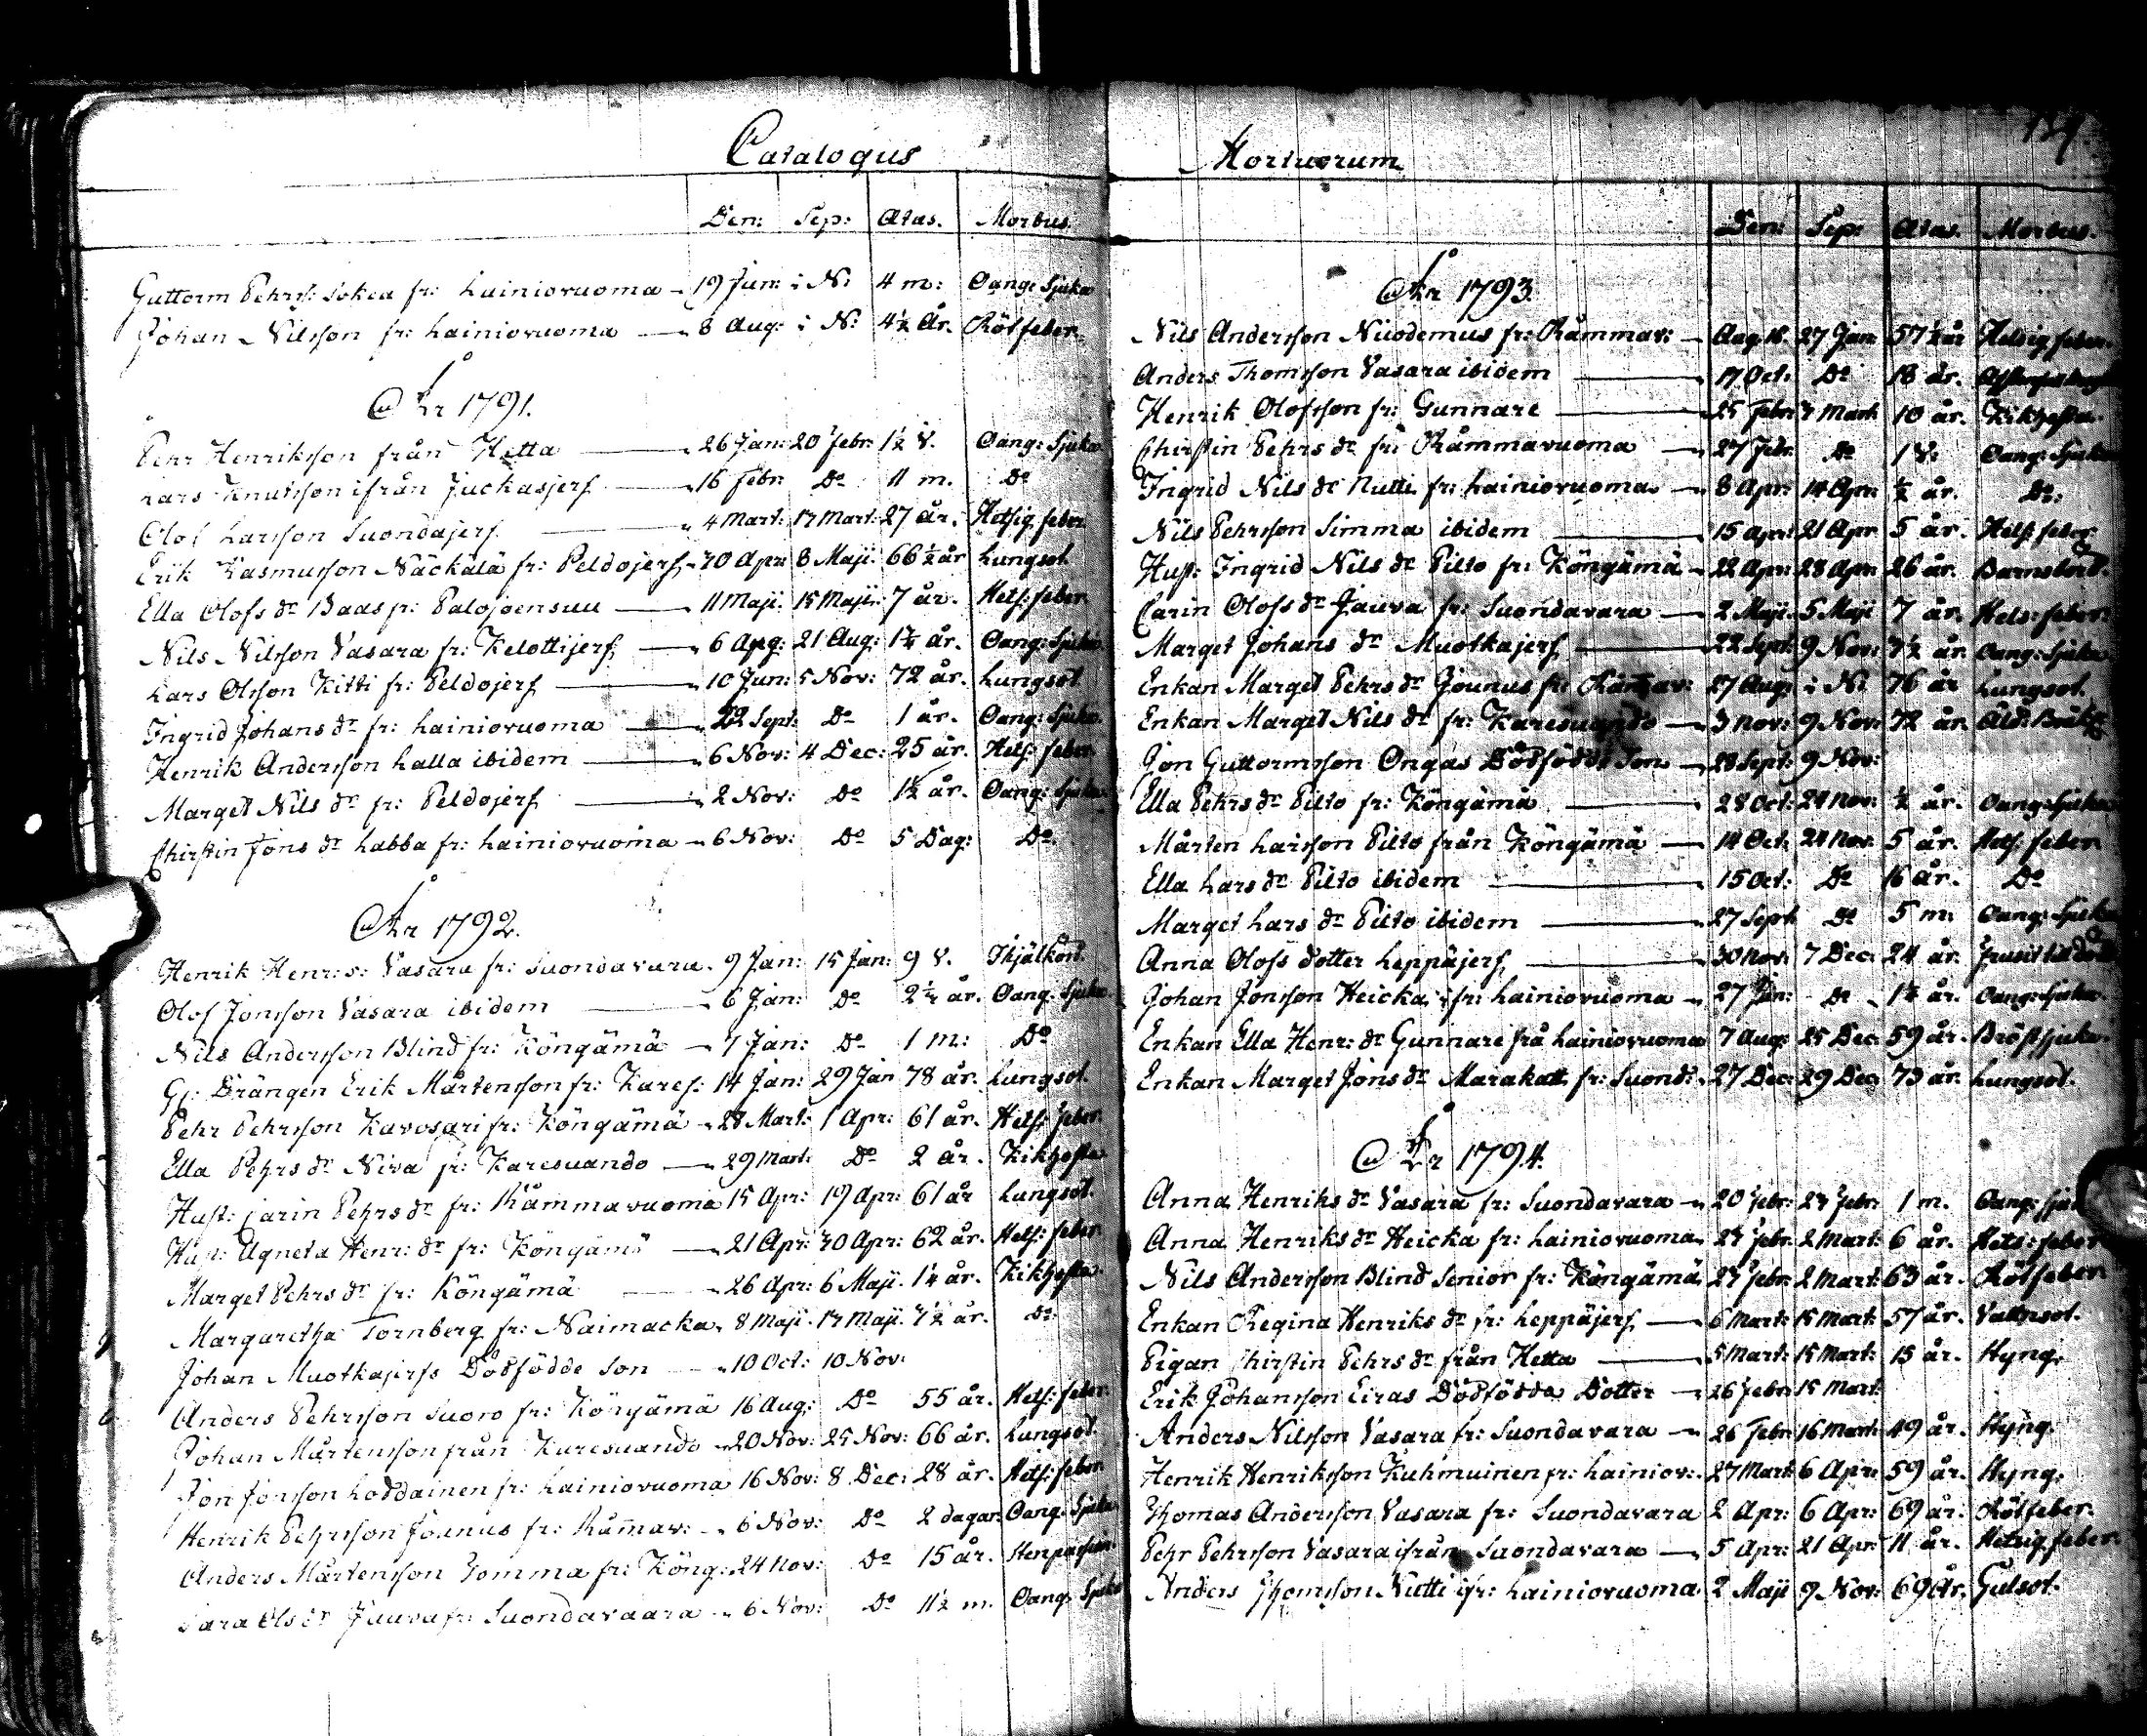 Catalogus
Den: Sep: Ætas. Morbus.
Guttorm Pehrs: Sokea fr: Lainiovuoma 19 Jun: i N: 4 m: Oang: Sjuka
Johan Nilsson fr: Lainiovuoma 8 Aug: i N: 4½ År. Rötfeber.
År 1791.
Pehr Henriksson från Hetta 26 Jan: 20 Febr: 1½ V. Oang: Sjuka
Lars Knutsson ifrån Juckasjerf 16 Febr. Do 11 m. Do
Olof Larsson Suondajerf 4 Mart: 17 Mart: 27 år. Hetsig feber
Erik Rasmusson Näckälä fr: Peldojerf 30 Apr: 8 Maji. 66½ år Lungsot.
Ella Olofs dr Baas fr: Palojoensuu 11 Maji. 15 Maji: 7 år. Hets: feber
Nils Nilsson Vasara fr: Kelottijerf 6 Aug: 21 Aug: 1¼ år. Oang: Sjuka
Lars Olsson Kitti fr: Peldojerf 10 Jun: 5 Nov: 72 år. Lungsot
Ingrid Johans dr fr: Lainiovuoma 22 Sept: Do 1 år. Oang: Sjuka
Henrik Andersson Lalla ibidem 6 Nov: 4 Dec: 25 år. Hets: feber
Marget Nils dr fr: Peldojerf 2 Nov: Do 1½ år. Oang: Sjuka
Chirstin Jöns dr Labba fr: Lainiovuoma 6 Nov: Do 5 Dag: Do.
År 1792.
Henrik Henr: s: Vasara fr: Suondavara. 9 Jan: 15 Jan: 9 V. Ihjälkörd.
Olof Jonsson Vasara ibidem 6 Jan: Do 2¼ år. Oang: Sjuka
Nils Andersson Blind fr: Köngämä 7 Jan: Do 1 m: Do
Gl: Drängen Erik Mårtensson fr: Kares: 14 Jan: 29 Jan 78 år. Lungsot.
Pehr Pehrsson Kavosari fr: Köngämä 28 Mart: 1 Apr: 61 år. Hets: feber.
Ella Pehrs dr Niva fr: Karesuando 29 Mart: Do 2 år. Kikhosta
Hust: Carin Pehrs dr fr: Råmmavuoma 15 Apr: 19 Apr: 61 år Lungsot.
Hust: Agneta Henr: dr fr: Köngämä 21 Apr: 30 Apr: 62 år. Hets: feber
Marget Pehrs dr fr: Köngämä 26 Apr: 6 Maji. 1¼ år. Kikhosta.
Margaretha Tornberg fr: Naimacka 8 Maji. 17 Maji. 7½ år. Do:
Johan Muotkajerfs Dödfödde Son 10 Oct: 10 Nov:
Anders Pehrsson Suoro fr: Köngämä 16 Aug: Do 55 år. Hets: feber
Johan Mårtensson från Karesuando 20 Nov: 25 Nov: 66 år. Lungsot.
Jon Jonsson Loddainen fr: Lainiovuoma 16 Nov: 8 Dec: 28 år. Hets: feber
Henrik Pehrsson Jounus fr: Råm̄av: 6 Nov: Do 2 dagar: Oang: Sjuka
Anders Mårtensson Jomma fr: Köng: 24 Nov: Do 15 år.
Sara Ols dr Jauva fr: Suondavaara 6 Nov: Do 11½ m. Oang: Sjuka
Mortuorum
Den: Sep: Ætas. Morbus.
År 1793.
Nils Andersson Nicodemus fr: Råmmav: Aug. 18. 27 Jan: 57½ år Hetsig feber.
Anders Thomsson Vasara ibidem 17 Oct: Do 18 år.
Henrik Olofsson fr: Gunnare 25 Febr: 3 Mart: 10 år. Kikhosta.
Chirstin Pehrs dr fr: Råmmavuoma 27 Febr: Do 1 V. Oang: Sjuka
Ingrid Nils dr Nutti fr: Lainiovuoma 8 Apr: 14 Apr: ½ år. Do:
Nils Pehrsson Simma ibidem 15 Apr: 21 Apr 5 år. Hets: feber
Hust: Ingrid Nils dr Pilto fr: Köngämä 22 Apr: 28 Apr: 26 år. Barnsbörd.
Carin Olofs dr Jauva fr: Suondavara 2 Maji 5 Maji 7 år. Hets: feber:
Marget Johans dr Muotkajerf 22 Sept: 9 Nov: 7½ år. Oang: Sjuka
Enkan Marget Pehrs dr Jounus fr: Råm̄av: 27 Aug: i N: 76 år Lungsot.
Enkan Marget Nils dr fr: Karesuando 3 Nov: 9 Nov: 72 år. Åld: Bräkl:
Jon Guttormsson Ongas Dödfödde Son 28 Sept: 9 Nov:
Ella Pehrs dr Pilto fr: Köngämä 28 Oct: 24 Nov: ½ år. Oang: Sjuka
Mårten Larsson Pilto från Köngämä 14 Oct: 24 Nov: 5 år. Hets: feber
Ella Lars dr Pilto ibidem 15 Oct: Do 16 år. Do
Marget Lars dr Pilto ibidem 27 Sept: Do 5 m: Oang: Sjuka
Anna Olofs dotter Leppäjerf 30 Nov: 7 Dec: 24 år. Frusit till död
Johan Jonsson Heicka ifr: Lainiovuoma 27 Jan: Do 1¼ år. Oang: Sjuka.
Enkan Ella Henr: dr Gunnare frå Lainiovuoma 7 Aug: 25 Dec: 59 år. Bröstsjuka.
Enkan Marget Jöns dr Marakatt fr: Suond: 27 Dec: 29 Dec: 73 år. Lungsot.
År 1794.
Anna Henriks dr Vasara fr: Suondavara 20 Febr: 23 Febr: 1 m. Oang:
Anna Henriks dr Heicka fr: Lainiovuoma 23 Febr: 2 Mart: 6 år. Hets: feber
Nils Andersson Blind Senior fr: Köngämä 23 Febr: 2 Mart: 63 år. Rötfeber
Enkan Regina Henriks dr fr: Leppäjerf 6 Mart: 15 Mart: 57 år. Vattnsot.
Pigan Chirstin Pehrs dr från Hetta 5 Mart: 15 Mart: 15 år. Hyng.
Erik Johansson Eiras Dödfödda Dotter 26 Febr: 15 Mart:
Anders Nilsson Vasara fr: Suondavara 26 Febr: 16 Mart: 49 år. Hyng.
Henrik Henriksson Kuhmuinen fr: Lainiov: 27 Mart: 6 Apr: 59 år. Hyng:
Thomas Andersson Vasara fr: Suondavara 2 Apr: 6 Apr: 69 år. Rötfeber.
Pehr Pehrsson Vasara ifrån Suondavara 5 Apr: 21 Apr: 11 år. Hetsig feber.
Anders Thomsson Nutti ifr: Lainiovuoma 2 Maji 9 Nov: 69 år. Gulsot.